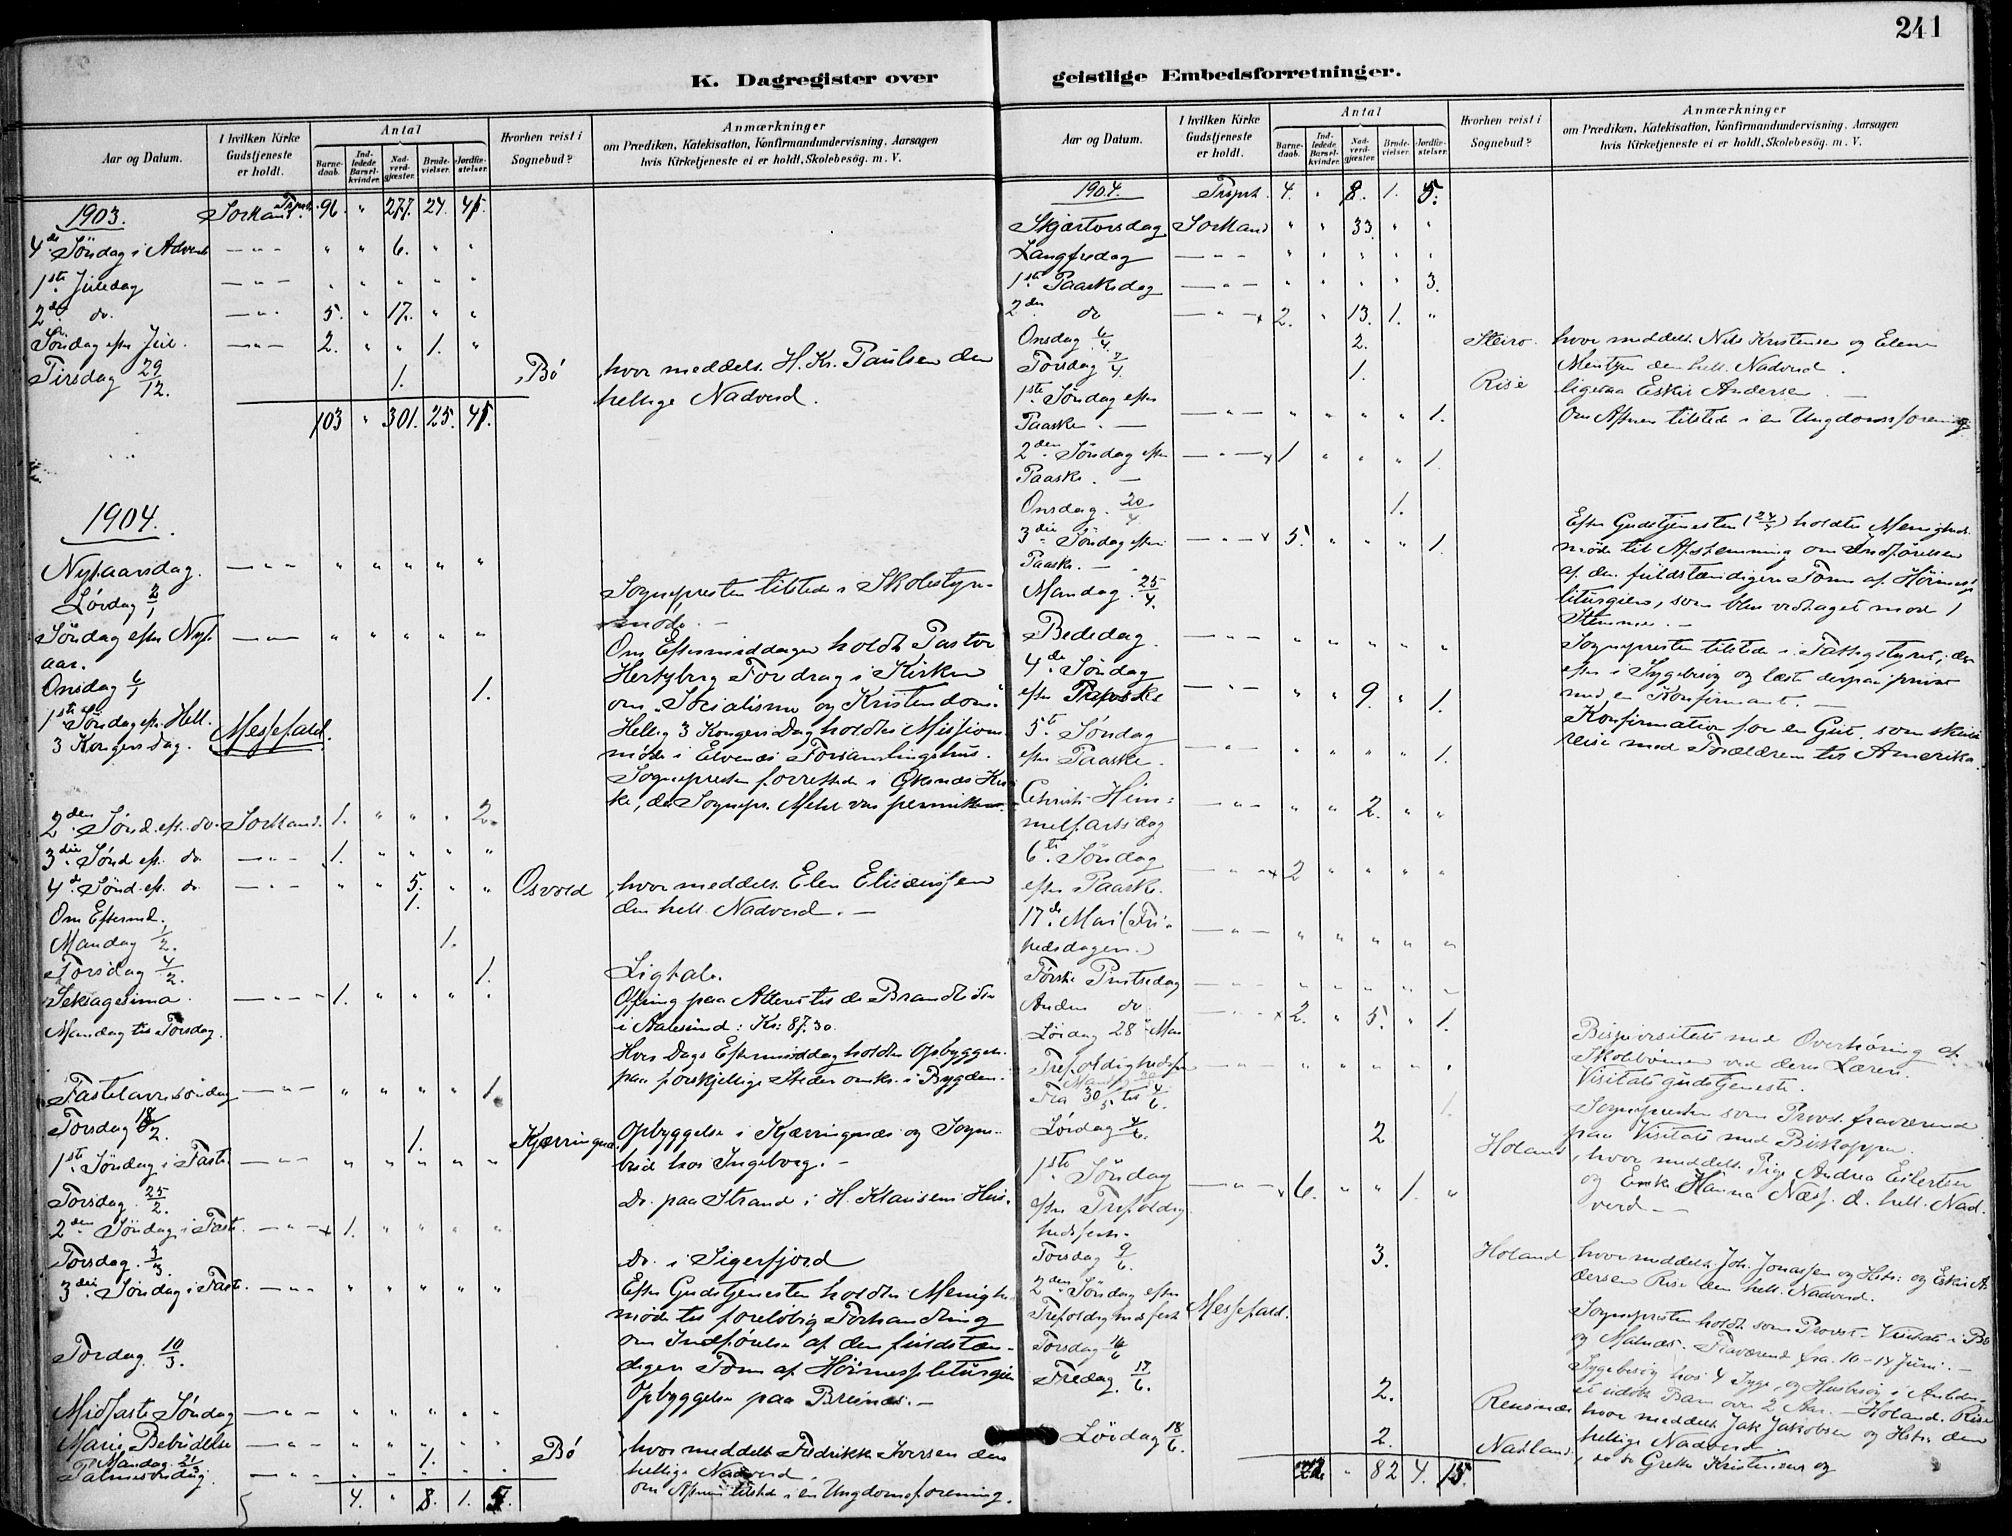 241
K. Dagregister over
Aar og Datum.
I hvilken Kirke Gudstjeneste er holdt.
Antal
Barnedaab.
Indledede Barselkvinder.
Nadverdgjæster.
Brudevielser.
Jordfæstelser.
Hvorhen reist i Sognebud?
Anmærkninger
om Prædiken, Katekisation, Konfirmandundervisning, Aarsagen
hvis Kirketjeneste ei er holdt, Skolebesög. m. V.
1903. Sortland. 96. " 277. 24. 45.
4de Söndag i Advent — " — " " 6. " "
1ste Juledag — " — " " " " "
2den do. — " — 5. " 17. " "
Söndag efter Jul. — " — 2. " " 1. "
Tirsdag 29/12. 1. Bö hvor meddelt H. Kr. Paulsen den
hellige Nadverd.
103 " 301. 25. 45.
1904.
Nytaarsdag. — " — " " " " "
Lördag 2/1 Sognepresten tilstede i Skolestyre-
möde. —
Söndag efter Nyt- — " — " " " " "
aar. Om Eftermiddagen holdt Pastor
Hertzberg Foredrag i Kirken
Onsdag 6/1 1. om "Socialisme og Kristendom".
1ste Söndag eft. Hell. Messefald. Hellig 3 Kongers Dag holdtes Missions-
3 Kongers Dag. möde i Elvenes Forsamlingshus.
Sognepresten forrettede i Öksnes Kir-
ke, da Sognepr. Mehr var permitteret.
2den Sönd. eft. do. Sortland. 1. " " " 2.
3die Sönd. eft. do — " — 1. " " " "
4de Sönd. eft. do — " — " " 5. " " Osvold hvor meddelt Elen Eliesensen
Om Efterm. 1. den hell. Nadverd. —
Mandag 1/2. 1.
Torsdag 4/2. 1. Ligtale.
Seksagesima — " — 1. " " " " Ofring paa Alteret til de Brandlidte
i Aalesund: Kr: 87.30.
Mandag til Torsdag. Hver Dags Eftermiddag holdtes Opbyggelse
paa forskjellige Steder omkr. i Bygden.
Fastelavnssöndag — " — " " " " 1.
Torsdag 18/2. 1. Kjærringnes Opbyggelse i Kjærringnes og Sogne-
bud hos Ingeborg. —
1ste Söndag i Faste. — " — " " " " "
Torsdag 25/2. Do. paa Strand i H. Klausens Hus.
2den Söndag i Faste — " — 1. " " " "
Torsdag. 3/3. Do. i Sigerfjord
3die Söndag i Faste. — " — " " " " " Efter Gudstjenesten holdtes Menigheds-
möde til forelöbig Forhandling
om Indförelse af den fuldstæn-
digere Form af Höimesseliturgien
Torsdag 10/3. Opbyggelse paa Breines. —
Midfaste Söndag — " — " " " " "
Marie Bebudelse — " — " " " " "
Mandag 21/3 1. Bö hvor meddelt Fredrikke Iversen den
hellige Nadverd.
Palmesöndag. — " — om Aftenen tilstede i en Ungdomsforening.
4. " 8. 1. 5.
geistlige Embedsforretninger.
Aar og Datum.
I hvilken Kirke Gudstjeneste er holdt.
Antal
Barnedaab.
Indledede Barselkvinder.
Nadverdgjæster.
Brudevielser.
Jordfæstelser.
Hvorhen reist i Sognebud?
Anmærkninger
om Prædiken, Katekisation, Konfirmandundervisning, Aarsagen
hvis Kirketjeneste ei er holdt, Skolebesög. m. V.
1904. Trsprt. 4. " 8. 1. 5.
Skjærtorsdag Sortland " " 33. " "
Langfredag — " — " " " " "
1ste Paaskedag — " — " " " " 3.
2den do — " — 2. " 13. 1. "
Onsdag 6/4 2. Steiro. hvor meddelt Nils Kristensen og Elen
Mentzen den hell. Nadverd.
Torsdag 7/4. 1. Rise ligesaa Eskil Andersen. —
1ste Söndag efter
Paaske. — — " — " " " " 1. Om Aftenen tilstede i en Ungdomsforening
2den Söndag efter — " — 1 " " " 1.
Paaske. —
Onsdag. 20/4. 1.
3die Söndag efter — " — 5. " " " 1. Efter Gudstjenesten (24/4) holdtes Menigheds-
Paaske. — möde til Afstemning om Indförelsen
Mandag. 25/4. af den fuldstændigere Form af Höimesse-
liturgien, som blev vedtaget mod 1
Stemme. —
Bededag. — " — " " " " " Sognepresten tilstede i Fattigstyret; der-
4de Söndag efter i Sygebesög og læst derpaa privat
efter Paaske — " — " " 9. " 1. med en Konfirmant. —
5te Söndag Konfirmation for en Gut, som skulde
efter Paaske. — " — " " " " 1. reise med Forældrene til Amerika.
Christi Him- — " — " " 2. " "
melfartsdag
6te Söndag — " — 2 " " " "
efter Paaske.
17de Mai (Fri- — " — " " " " "
hedsdagen.)
Förste Pintsedag — " — " " " " "
Anden do — " — 2. " 5. " 1.
Lördag 28 Mai Bispevisitats med Overhöring af
Skolebörnene ved deres Lærere.
Trefoldighedsfest — " — " " " " " Visitatsgudstjeneste.
Mandag 30
Fra 30/5 til 4/6. 1. Sognepresten som Provst fraværende
paa Visitats med Biskoppen.
Lördag 4/6. 2 Holand, hvor meddelt Pige Andrea Eilertsen
og Enke Hanna Næss d. hell. Nad-
verd —
1ste Söndag — " — 6. " " 1. "
efter Trefoldig-
hedsfest.
Torsdag 9/6. 3. Holand hvor meddelt Joh. Jonassen og Hstr: og Eskil An-
dersen Rise den hell. Nadverd.
2den Söndag efter
Trefoldighedsfest Messefald. Sognepresten holdt som Provst Visitats i Bö
Torsdag 16/6 og Malnes. Fraværend fra 10-14 Juni. —
Fredag. 17/6. 2. Reinsnes Sygebesög hos 4 Syge, og Husbesög i Anledn.
et udöbt Barn over 2 Aar. — Holand. Rise
hvor meddelt Jak Jakobsen og Hstr: den
hellige Nadverd.
Lördag 18/6. 2. Natland, do do Grethe Kristensen og
" 82 4. 15.